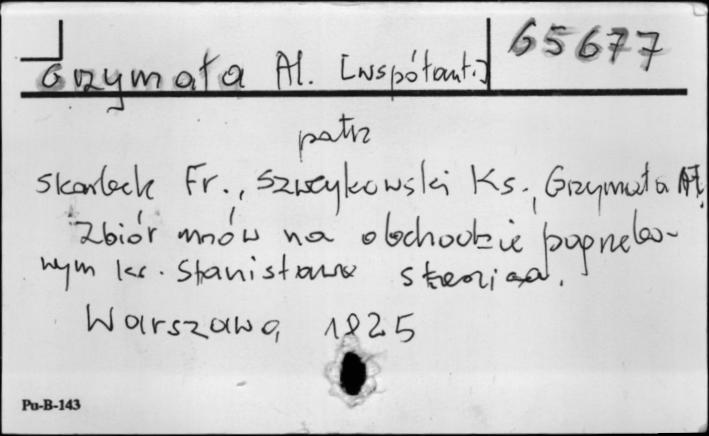 65677
Grzymała Al. [współaut.]
patrz
Skarbek Fr., Szweykowski Ks., Grzymała Al.
Zbiór mów na obchodzie pogrzebo-
wym ks. Stanisława Staszica.
Warszawa 1825
Pu-B-143